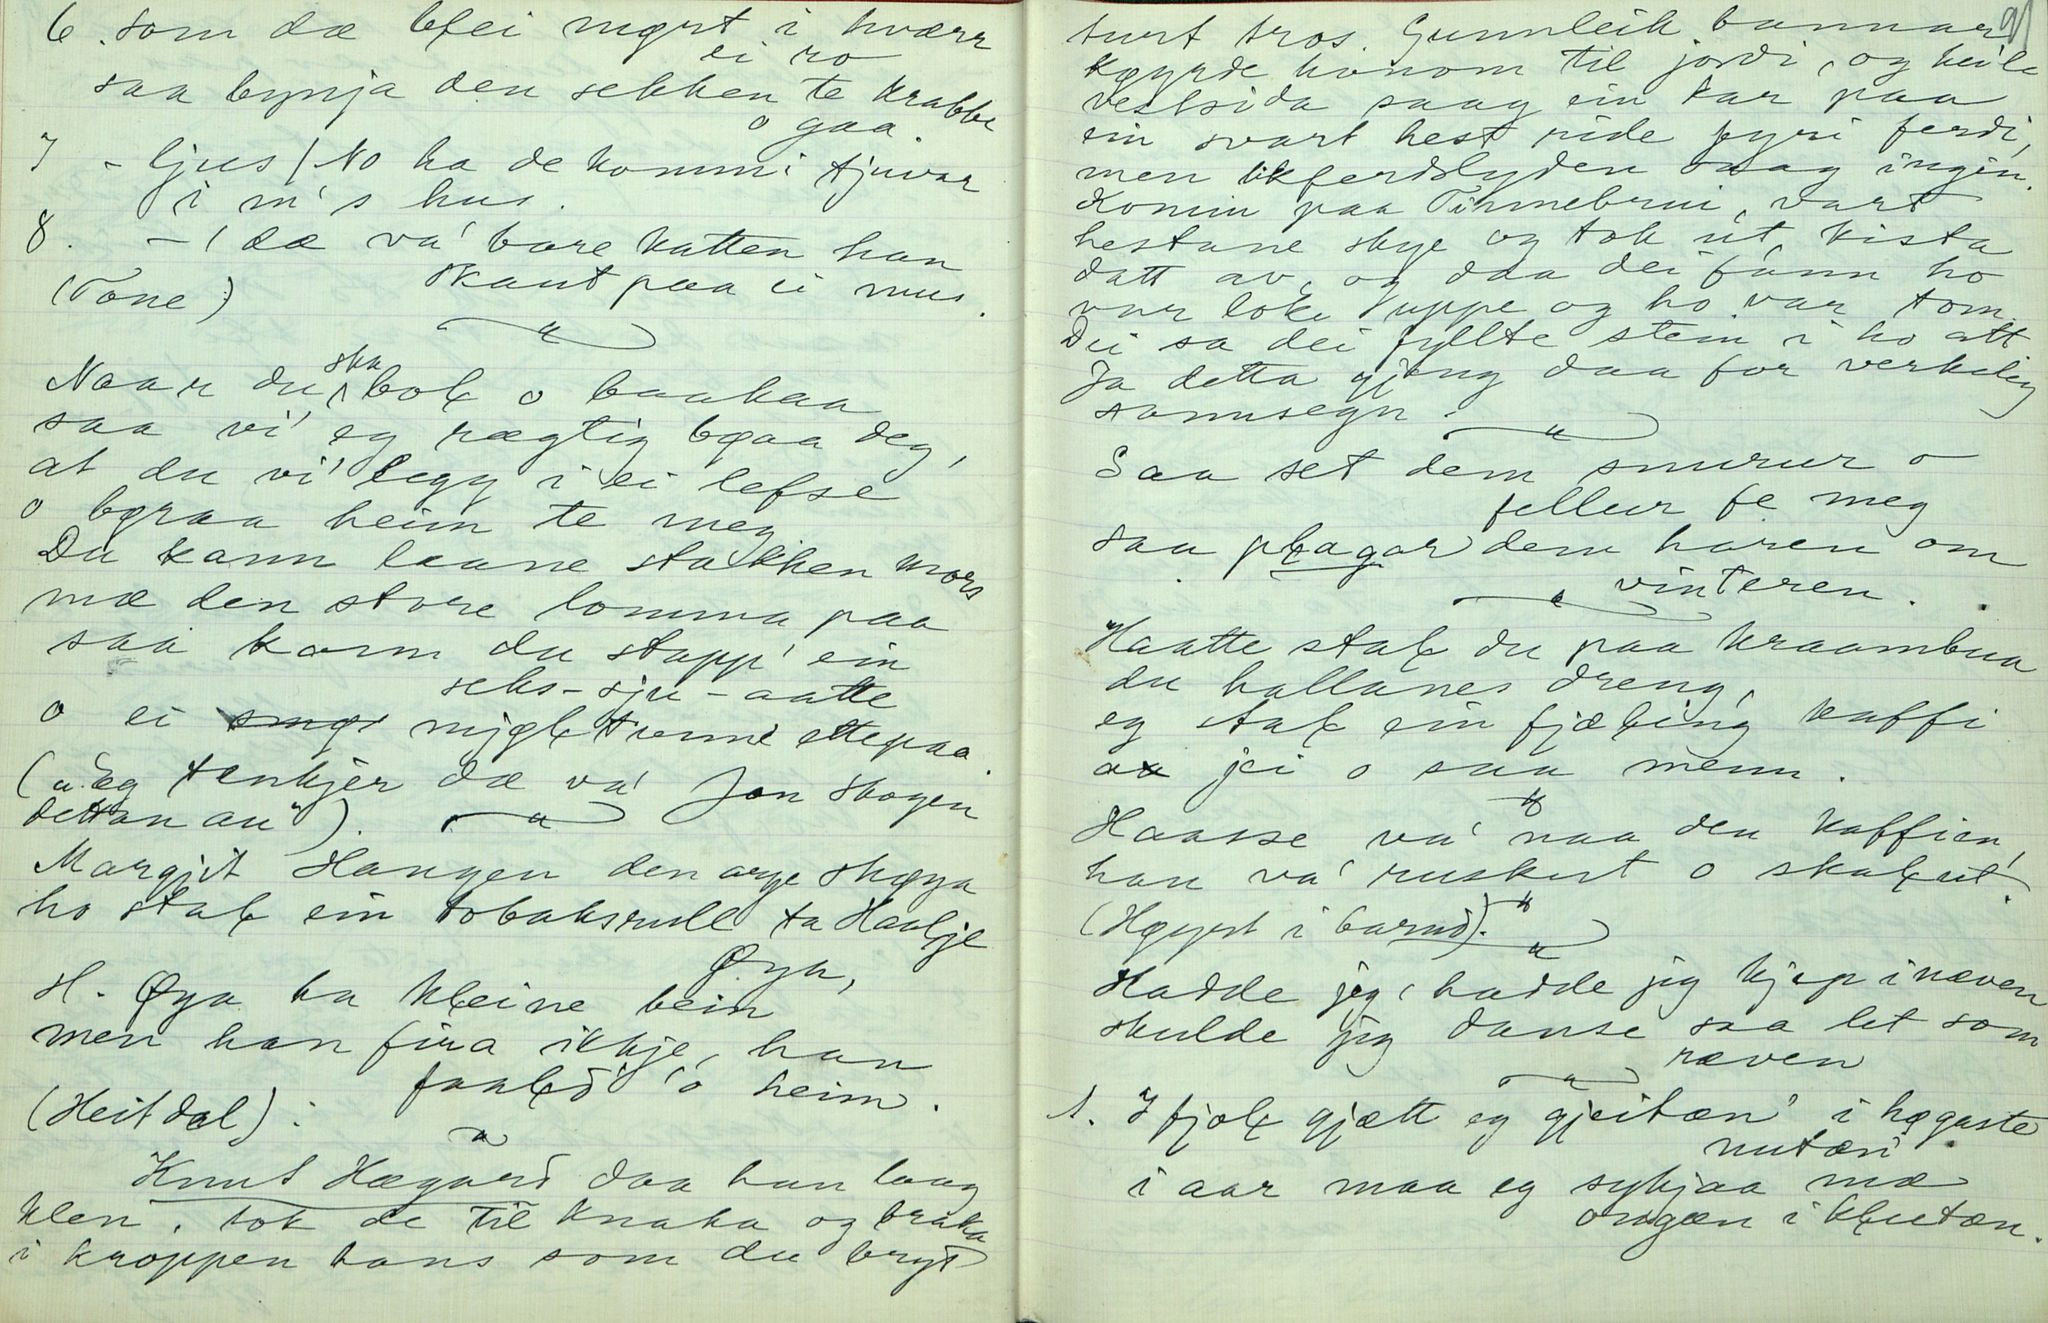 6. som dæ blei myrt i hværr
ei ro
saa bynja den sekken te krabbe
o gaa.
7 - ljus / No ha de kommi tjuvar
i m's hus.
8. - ( dæ va' bare katten han
skaut paa ei mus.
(Tone)
Naar du ska bot o baakaa
saa vi' eg rægtig bqaa deg,
at du vi' legg i ei lefse
o bqraa heim te meg
Du kann laane stakken mors
mæ den store lomma paa
saa kann du stapp' ein
seks-sju-aatte
o ei mjqltunne ettepaa.
("Eg tenkjer dæ va' Jon Skogen
dettan au").
Margjit Haugen den arge skqya
ho stal ein tobaksrull ta Haalje
Øya,
H. Øya ha kleine bein
men han fira ikkje, han
faaled' o heim.
(Heitdal):
Knut Hægard daa han laag
klen, tok de til knaka og braka
i kroppen hans som du bryt
turt tros. Gunnleik bannar
kqyrde honom til jordi, og heile
vestsida saag ein kar paa
ein svart hest ride fyri ferdi,
men likferdslyden saag ingin.
Komin paa Tinnebrui, vart
hestane skye og tok ut, kista
datt av, og daa dei fann ho
var loke uppe og ho var tom.
Dei sa dei fyllte stein i ho att
Ja detta gjeng daa for verkeleg
sannsegn.
Saa set dem snurur o
fellur fe meg
saa plagar dem haren om
vinteren.
Haatte stal du paa kraambua
du hallanes dreng,
eg stal ein fjæling kaffi
jei o saa menn.
Haasse va' naa den kaffien,
han va' ruskut o skalut.
(Hqyrt i barnd).
Hadde jeg, hadde jeg kjep i næven
skulde jeg danse saa let som
ræven
1. I fjol gjætt eg gjeitæn' i hqgaste
nutæn'
i aar maa eg sykjaa mæ
ongæn i klutæn.